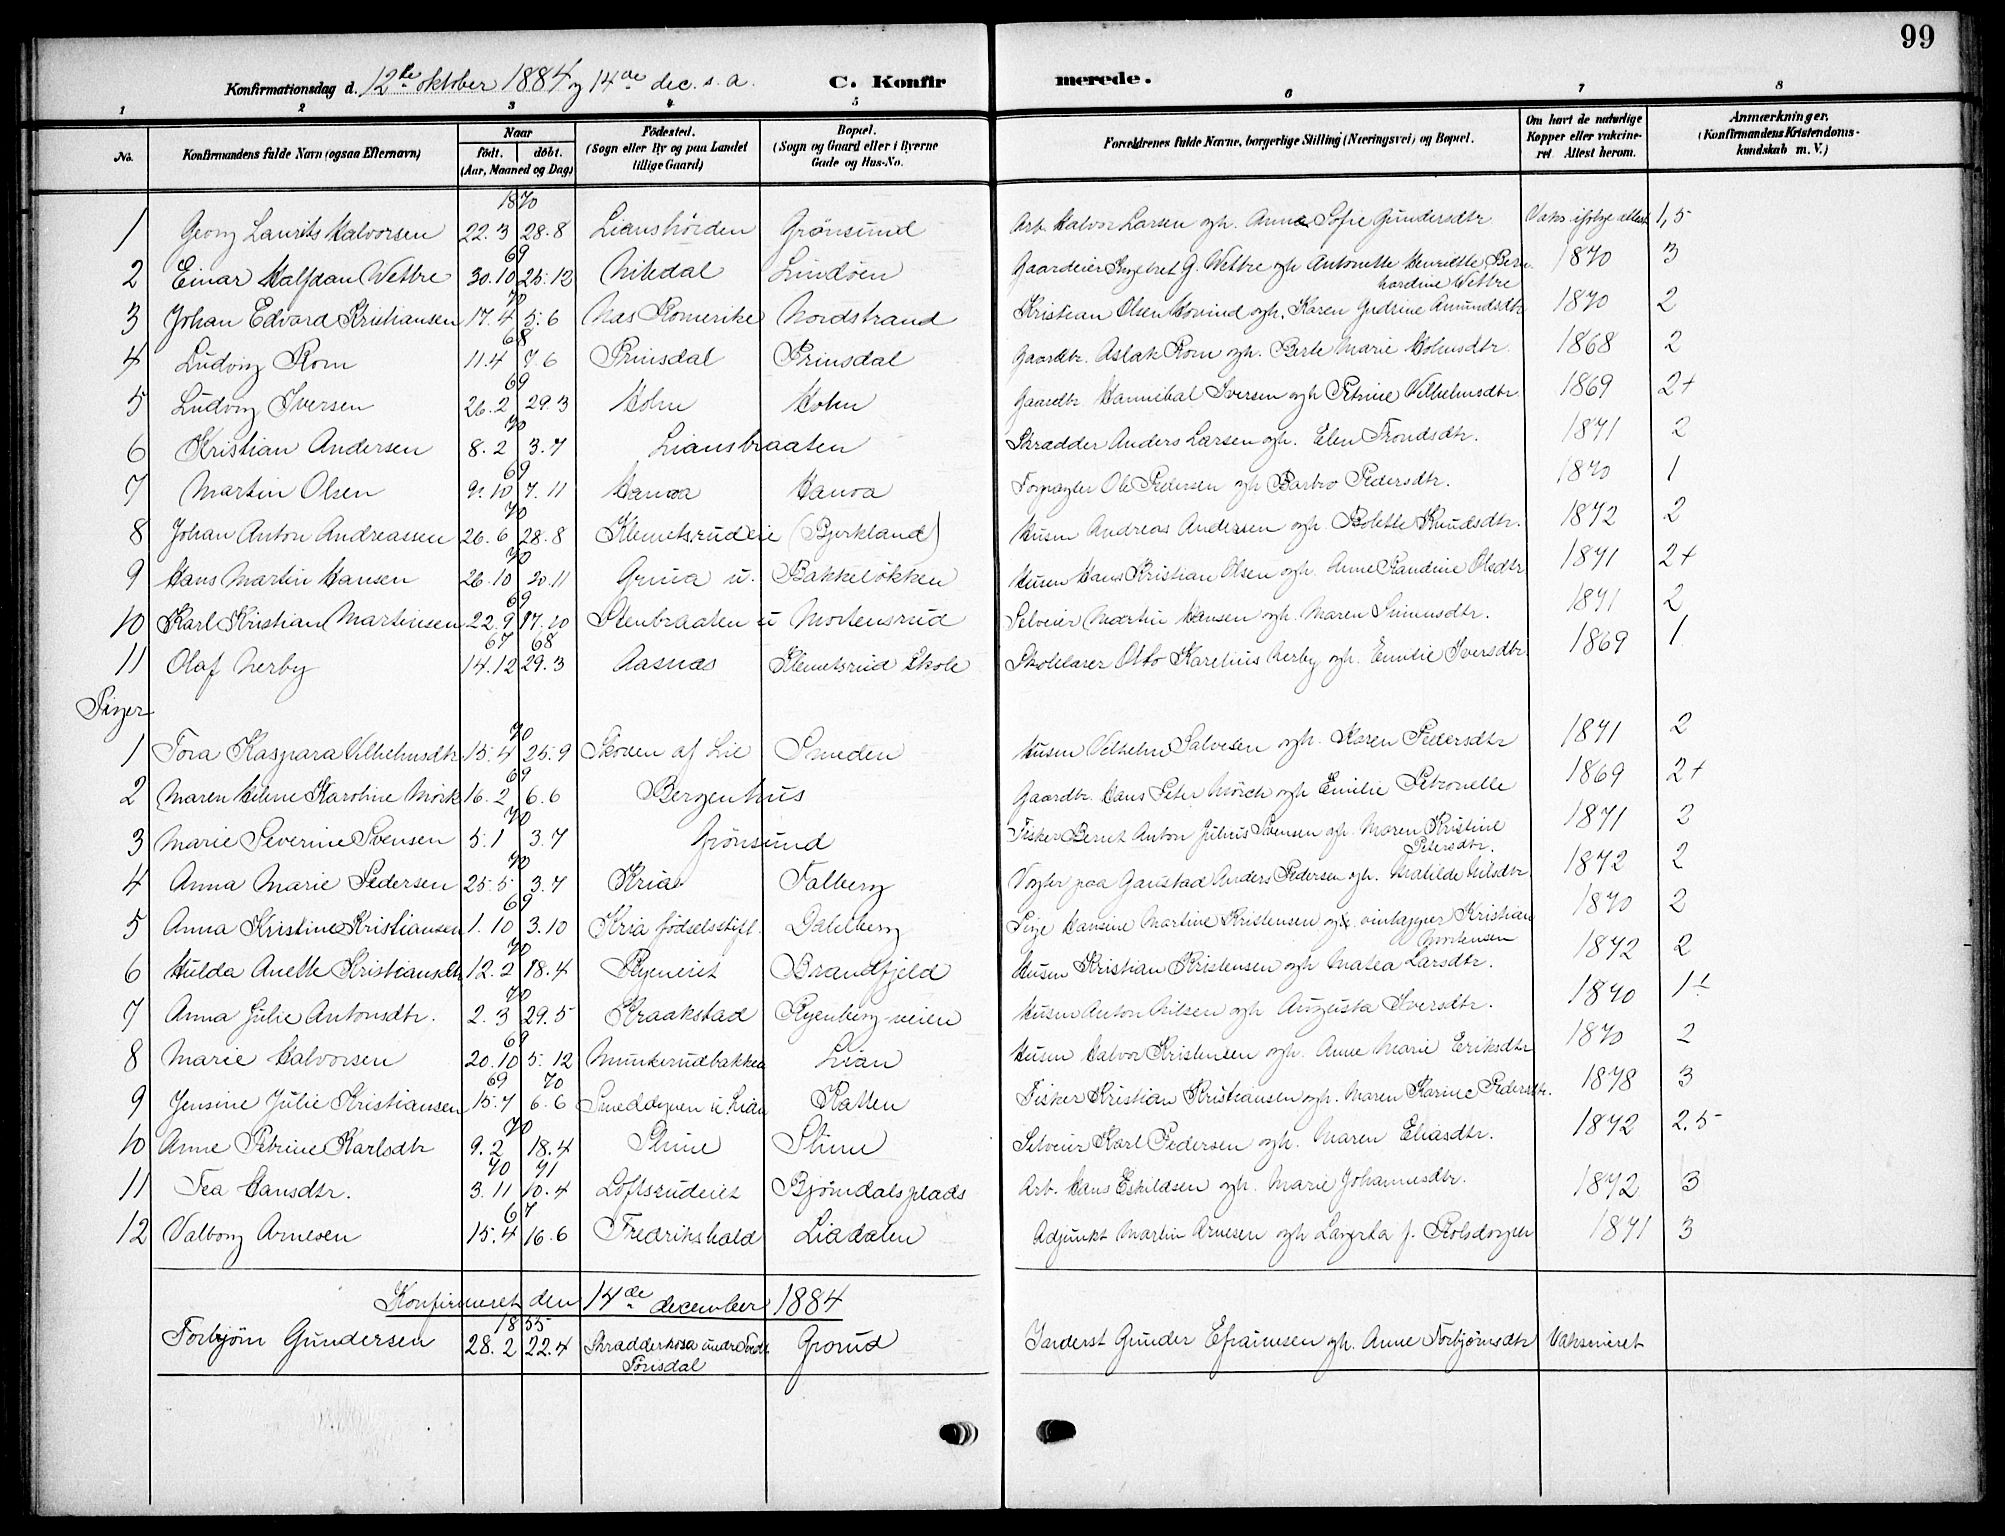 99
Konfirmationsdag d. 12te oktober 1884 og 14de dec. s. a. C. Konfirmerede.
1 2 3 4 5 6 7 8
No. Konfirmandens fulde Navn (ogsaa Efternavn) Naar født. døbt. (Aar, Maaned og Dag) Fødested. (Sogn eller By og paa Landet tillige Gaard) Bopæl. (Sogn og Gaard eller i Byerne Gade og Hus-No. Forældrenes fulde Navne, borgerlige Stilling (Næringsvei) og Bopæl. Om havt de naturlige Kopper eller vakcineret Attest herom. Anmærkninger. (Konfirmandens Kristendomskundskab m. V.)
1870
1 Georg Laurits Halvorsen 22.3 28.8 Grønsund Arb. Halvor Larsen ogh. Anna Sofie Gundersdtr Vaks. ifølge attest 1,5
69
2 Einar Halfdan Wettre 30.10 25.12 Nitedal Lindøen Gaardeier Ingebret G. Wettre ogh Antonette Henriette Bernhardine Wettre 1870 3
70
3 Johan Edvard Kristiansen 17.4 5.6 Næs Romerike Nordstrand Kristian Olsen Hovind ogh. Karen Gudrine Amundsdtr 1870 2
68
4 Ludvig Rom 11.4 7.6 Prinsdal Prinsdal Gaardbr. Aslak Rom ogh. Berte Marie Holmsdtr. 1868 2
69
5 Ludvig Iversen 26.2 29.3 Holm Holm Gaardbr. Hannibal Iversen ogh Petrine Vilhelmsdtr 1869 2+
70
6 Kristian Andersen 8.2 3.7 Liansbraaten Skrædder Anders Larsen ogh. Elen Trondsdtr. 1871 2
69
7 Martin Olsen 9.10 7.11 Hauva Hauva Forpagter Ole Pedersen ogh Barbro Pedersdtr. 1870 1
70
8 Johan Anton Andreassen 26.6 28.8 Klemetsrudeie (Bjerkland) Husm Andreas Andersen ogh Bolette Knudsdtr. 1872 2
70
9 Hans Martin Hansen 26.10 20.11 Grina u. Bakkeløkken Husm Hans Kristian Olsen ogh. Anne Randine Olsdtr 1871 2+
69
10 Karl Kristian Martinsen 22.9 17.10 Stenbraaten u Mortensrud Selveier Martin Hansen ogh. Maren Simensdtr. 1871 2
67 68
11 Olaf Nerby 14.12 29.3 Aasnæs Klemetsrud Skole Skolelærer Otto Karelius Nerby ogh. Emilie Iversdtr 1869 1
Piger
70
1 Tora Kaspara Vilhelmsdtr. 15.4 25.9 Skoven af Lie Smeden Husm Vilhelm Salvesen ogh. Karen Pedersdtr 1871 2
69
2 Maren Helene Karoline Mørk 16.2 6.6 Bergenhus Gaardbr. Hans Peter Mørch ogh Emilie Petronelle 1869 2+
70
3 Marie Severine Svensen 5.1 3.7 Grønsund Fisker Bernt Anton Julius Svensen ogh. Maren Kristine Petersdtr. 1871 2
70
4 Anna Marie Pedersen 25.5 3.7 Kria Falberg Vogter paa Gaustad Anders Pedersen ogh. Matilde Nilsdtr 1872 2
69
5 Anna Kristine Kristiansen 1.10 3.10 Kria fødselsstift. Dahlberg Pige Hansine Martine Kristensen og vintapper Kristian Mortensen 1870 2
70
6 Hulda Anette Kristiansdtr 12.2 18.4 Ryeneiet Brandfjeld Husm Kristian Kristensen ogh Matea Larsdtr. 1872 2
70
7 Anna Julie Antonsdtr. 2.3 29.5 Kraakstad Ryenberg-veien Husm Anton Nilsen ogh Augusta Iversdtr. 1870 1
69
8 Marie Halvorsen 20.10 5.12 Munkerudbakken Lian Husm Halvor Kristensen ogh. Anne Marie Eriksdtr 1870 2
69 70
9 Jensine Julie Kristiansen 15.7 6.6 u Lian Katten Fisker Kristian Kristiansen ogh. Maren Karine Pedersdtr. 1878 3
70
10 Anne Petrine Karlsdtr 9.2 18.4 Stime Stime Selveier Karl Pedersen ogh. Maren Eliasdtr. 1872 2.5
70 71
11 Tea Hansdtr. 3.11 10.4 Loftsrudeiet Bjørndalsplads Arb. Hans Eskildsen ogh. Marie Johannesdtr. 1872 3
67
12 Valborg Arnesen 15.4 16.6 Fredrikshald Liadalen Adjunkt Martin Arnesen ogh f. 1871 3
Konfirmeret den 14de december 1884
1855
Torbjørn Gundersen 28.2 22.4 Tørisdal Grorud Inderst Gunder Efraimsen ogh. Anne Torbjørnsdtr Vaksineret